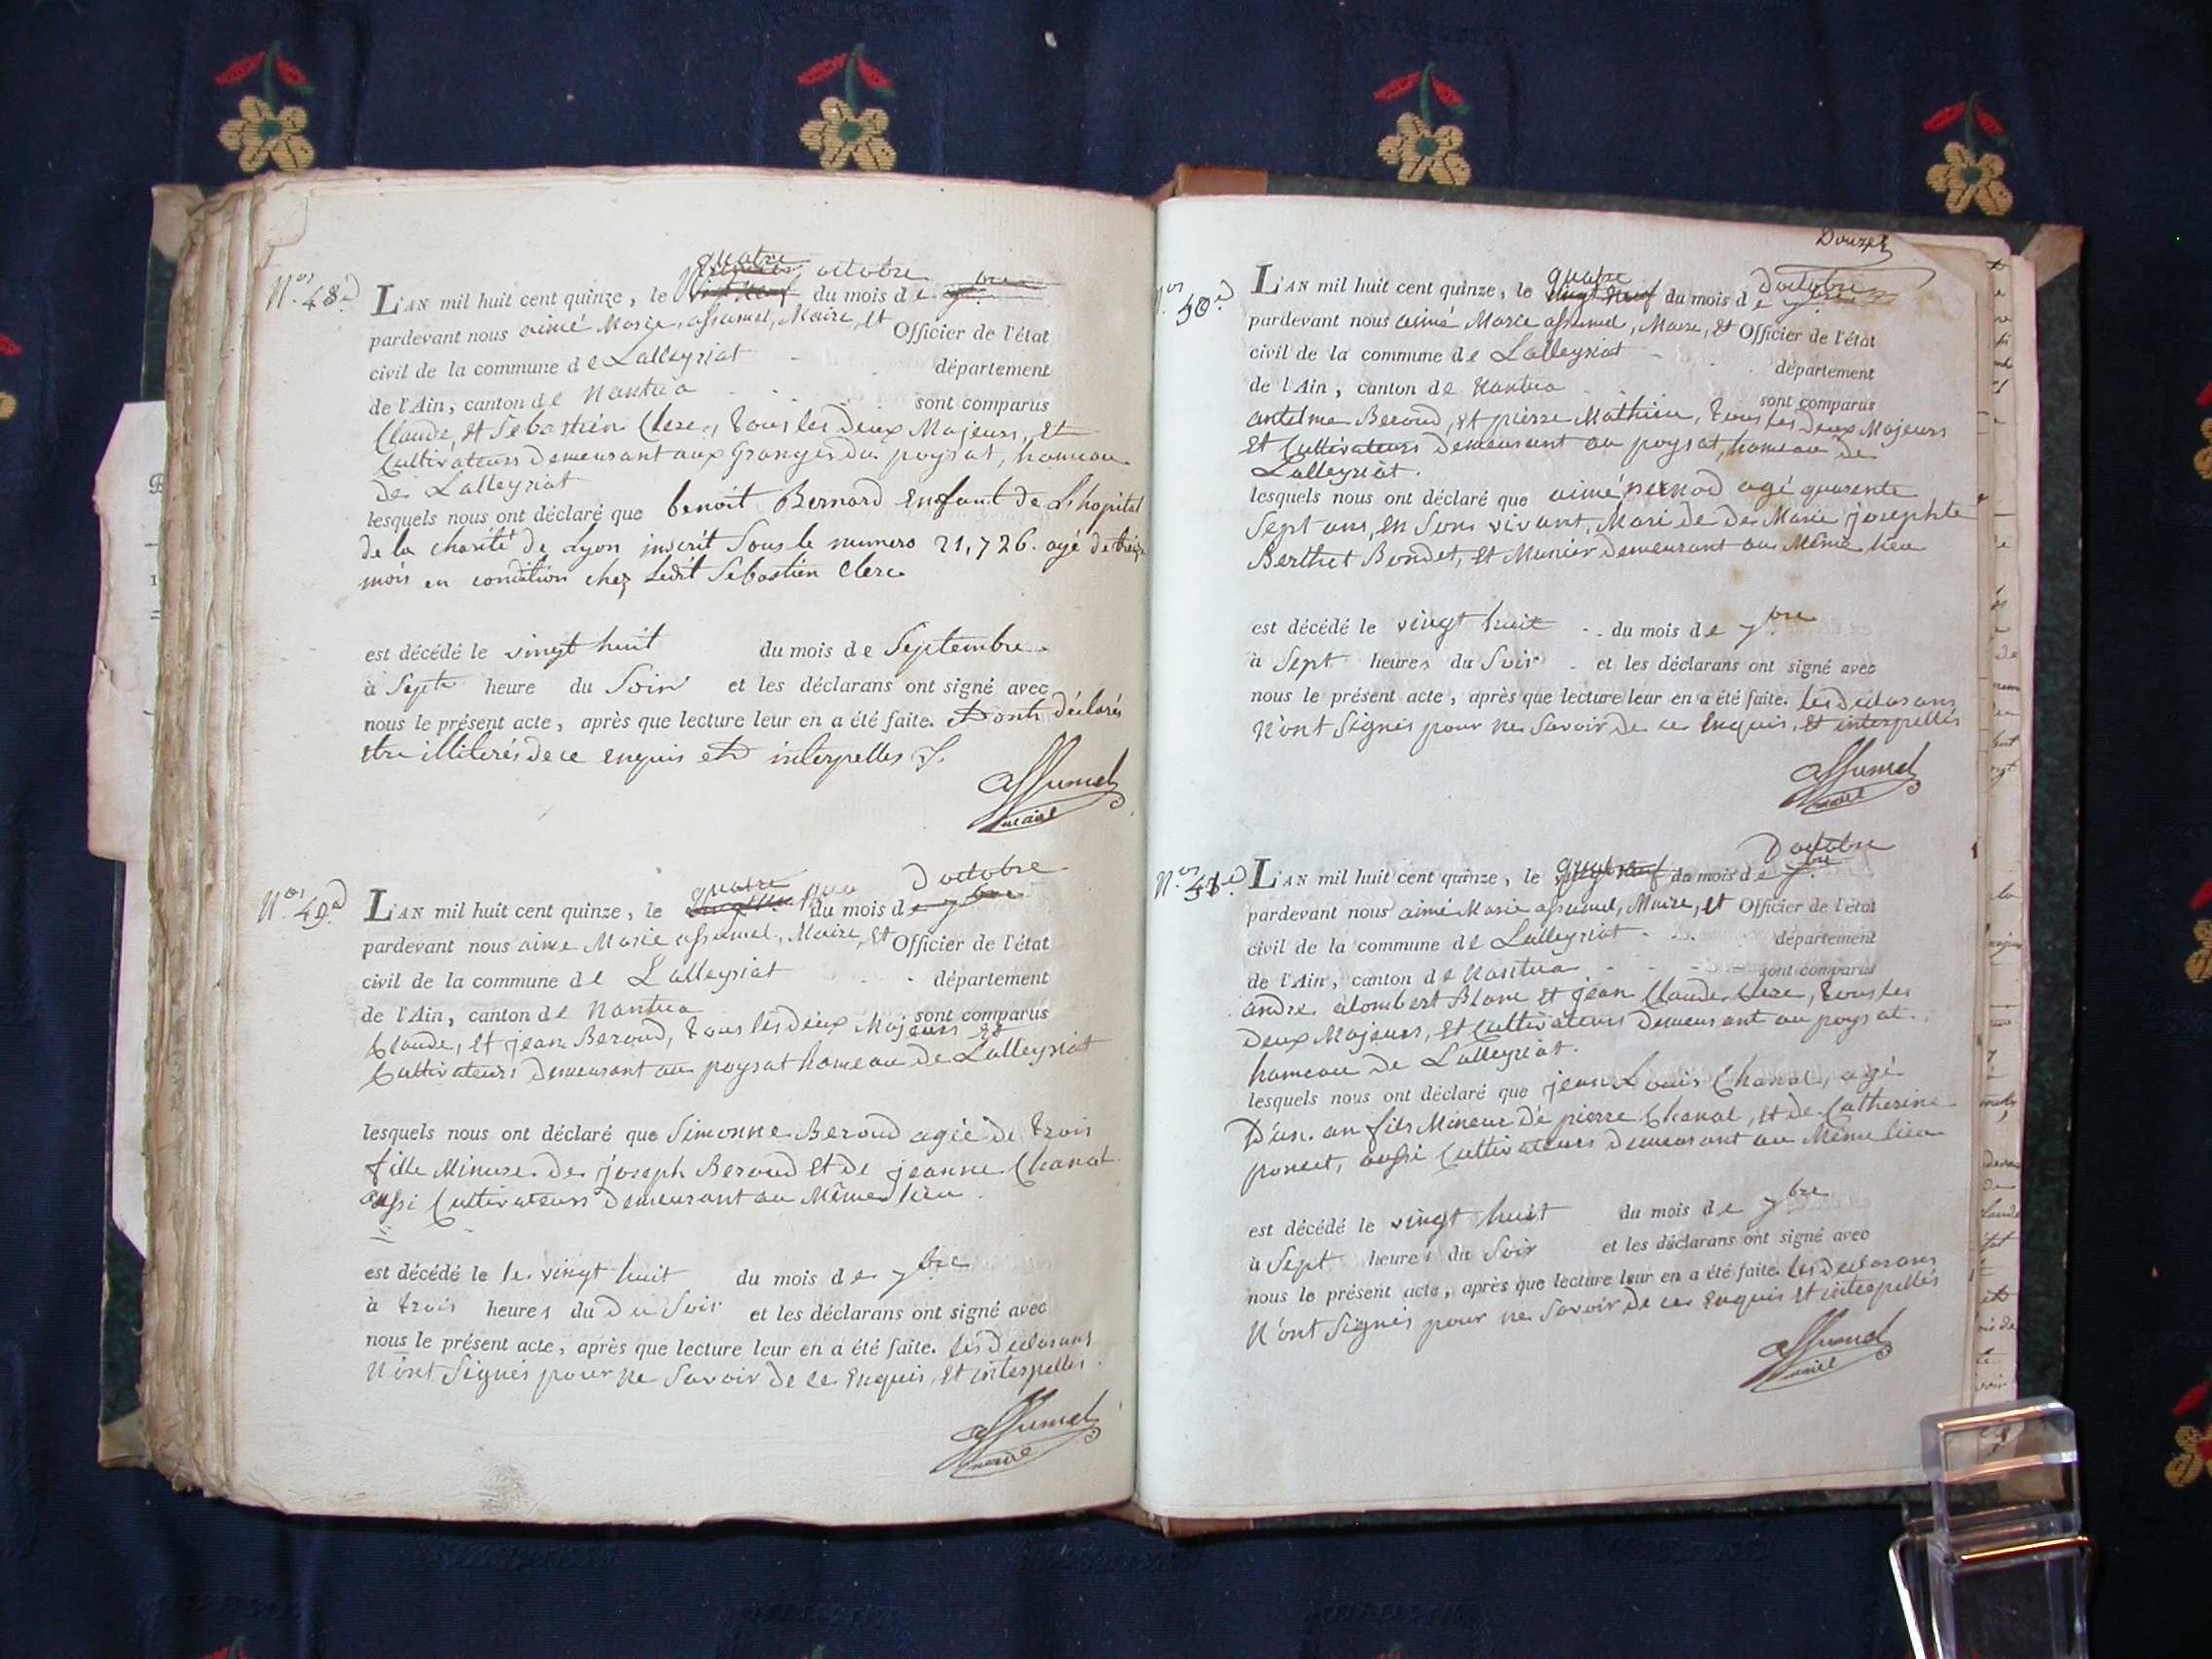 Nos 48d
quatre octobre
L'AN mil huit cent quinze, le vingt neuf du mois de 7bre
pardevant nous aimé Marie assumel, Maire, et Officier de l'état
civil de la commune de Lalleyriat département
de l'Ain, canton de Nantua sont comparus
Claude, et Sebastien Clerc, tous les deux Majeurs, et
Cultivateurs demeurant aux Granges du poysat, hameau
de Lalleyriat
lesquels nous ont déclaré que benoit Bernard enfant de L'hopital
de la charité de Lyon inscrit Sous le numero 21,726. agé de treize
mois en condition chez Ledit Sebastien Clerc
est décédé le vingt huit du mois de Septembre
à Sept heure du Soir et les déclarans ont signé avec
nous le présent acte, après que lecture leur en a été faite. et ont déclarés
etre illiterés de ce enquis et interpelles
assumel
maire
Nos 49d
quatre D'octobre
L'AN mil huit cent quinze, le du mois de 7bre
pardevant nous aimé Marie assumel, Maire, et Officier de l'état
civil de la commune de Lalleyriat département
de l'Ain, canton de Nantua sont comparus
Claude, et jean Beroud, tous les deux Majeurs et
Cultivateurs demeurant au poysat hameau de Lalleyriat
lesquels nous ont déclaré que Simonne Beroud agée de trois
fille Mineure de joseph Beroud et de jeanne Chanal
aussi Cultivateurs demeurant au Même lieu
est décédé le le vingt huit du mois de 7bre
à trois heures du Du Soir et les déclarans ont signé avec
nous le présent acte, après que lecture leur en a été faite. les declarans
N'ont Signés pour ne Savoir de ce enquis, et interpellés
assumel
maire
Douze
Nos 50d
quatre D'octobre
L'AN mil huit cent quinze, le vingt neuf du mois de 7bre
pardevant nous aimé Marie assumel, Maire, et Officier de l'état
civil de la commune de Lalleyriat département
de l'Ain, canton de Nantua sont comparus
antelme Beroud, et pierre Mathieu, tous les deux Majeurs
et Cultivateurs demeurant au poysat, hameau de
Lalleyriat.
lesquels nous ont déclaré que aimé pernod agé quarente
Sept ans, en Son vivant, Mari de de Marie josephte
Berthet Bondet, et Munier demeurant au Même lieu
est décédé le vingt huit du mois de 7bre
à Sept heures du Soir et les déclarans ont signé avec
nous le présent acte, après que lecture leur en a été faite. les declarans
N'ont Signés pour ne Savoir de ce enquis, et interpellés
assumel
maire
Nos 51d
quatre D'octobre
L'AN mil huit cent quinze, le vingt neuf du mois de 7bre
pardevant nous aimé Marie assumel, Maire, et Officier de l'état
civil de la commune de Lalleyriat département
de l'Ain, canton de Nantua sont comparus
andre alombert Blanc et jean Claude Clerc, tous les
deux Majeurs, et Cultivateurs demeurant au poysat
hameau de Lalleyriat.
lesquels nous ont déclaré que jean Louis Chanal, agé
D'un an fils Mineur de pierre Chanal, et de Catherine
poncet, aussi Cultivateurs demeurant au Même lieu
est décédé le vingt huit du mois de 7bre
à Sept heures du Soir et les déclarans ont signé avec
nous le présent acte, après que lecture leur en a été faite. les declarans
N'ont Signés pour ne Savoir de ce enquis et interpellés
assumel
maire